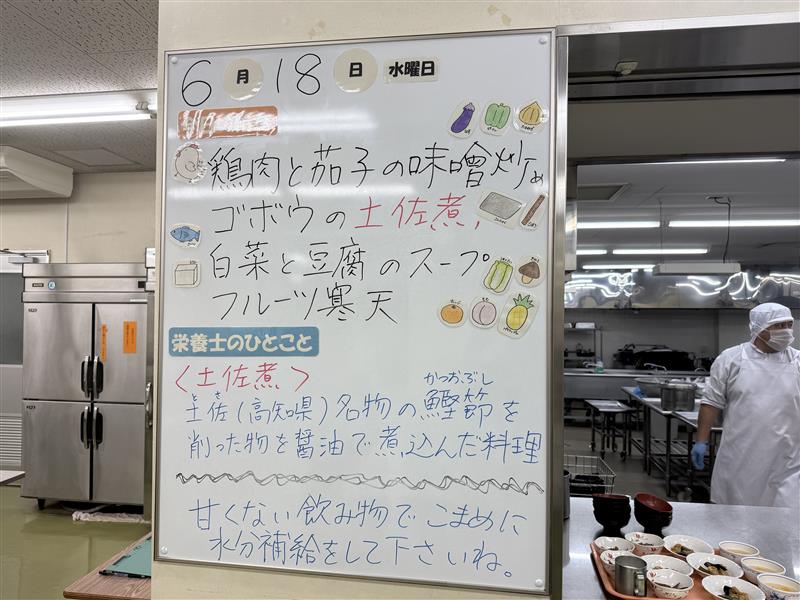 6月18日 水曜日
鶏肉と茄子の味噌炒め
ゴボウの土佐煮
白菜と豆腐のスープ
フルーツ寒天
栄養士のひとこと
〈土佐煮〉
土佐(高知県)名物の鰹節を
とさ
かつおぶし
削った物を醤油で煮込んだ料理
甘くない飲み物でこまめに
水分補給をして下さいね。